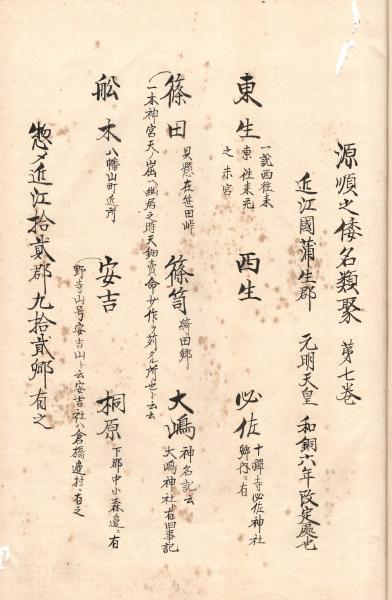 源順之倭名類聚 第七巻
近江國蒲生郡 元明天皇 和銅六年改定處也
東生 一説西往来 東往来元 之 宮 西生 必佐 十禅寺必佐神社 郷内ニ有
篠田 貝懸在笹田峠 篠笥 綺田郷 大嶋 神名記云 大嶋神社者旧事記
一本神宮天ノ窟ヘ幽居之時天鈿賣命 作ヲ苅タル所也ト云云
舩木 八幡山町近所 安吉 野寺山号安吉山ト云安吉社ハ倉橋邊村ニ有之 桐原 下郡中小森邊ニ有
惣〆近江拾貳郡九拾貳郷有之